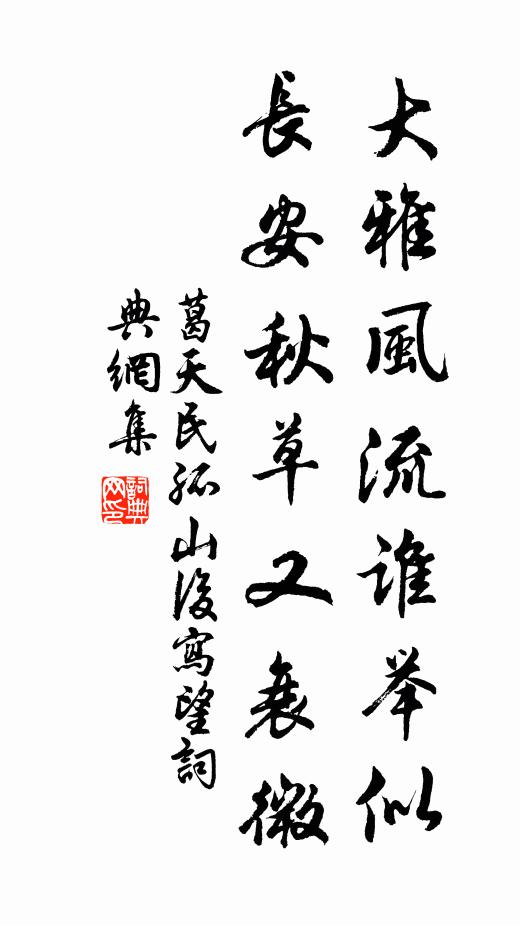 大雅風流誰举似
長安秋草又衰微
葛天民孤山後寫望詞
典網集
詞典网印